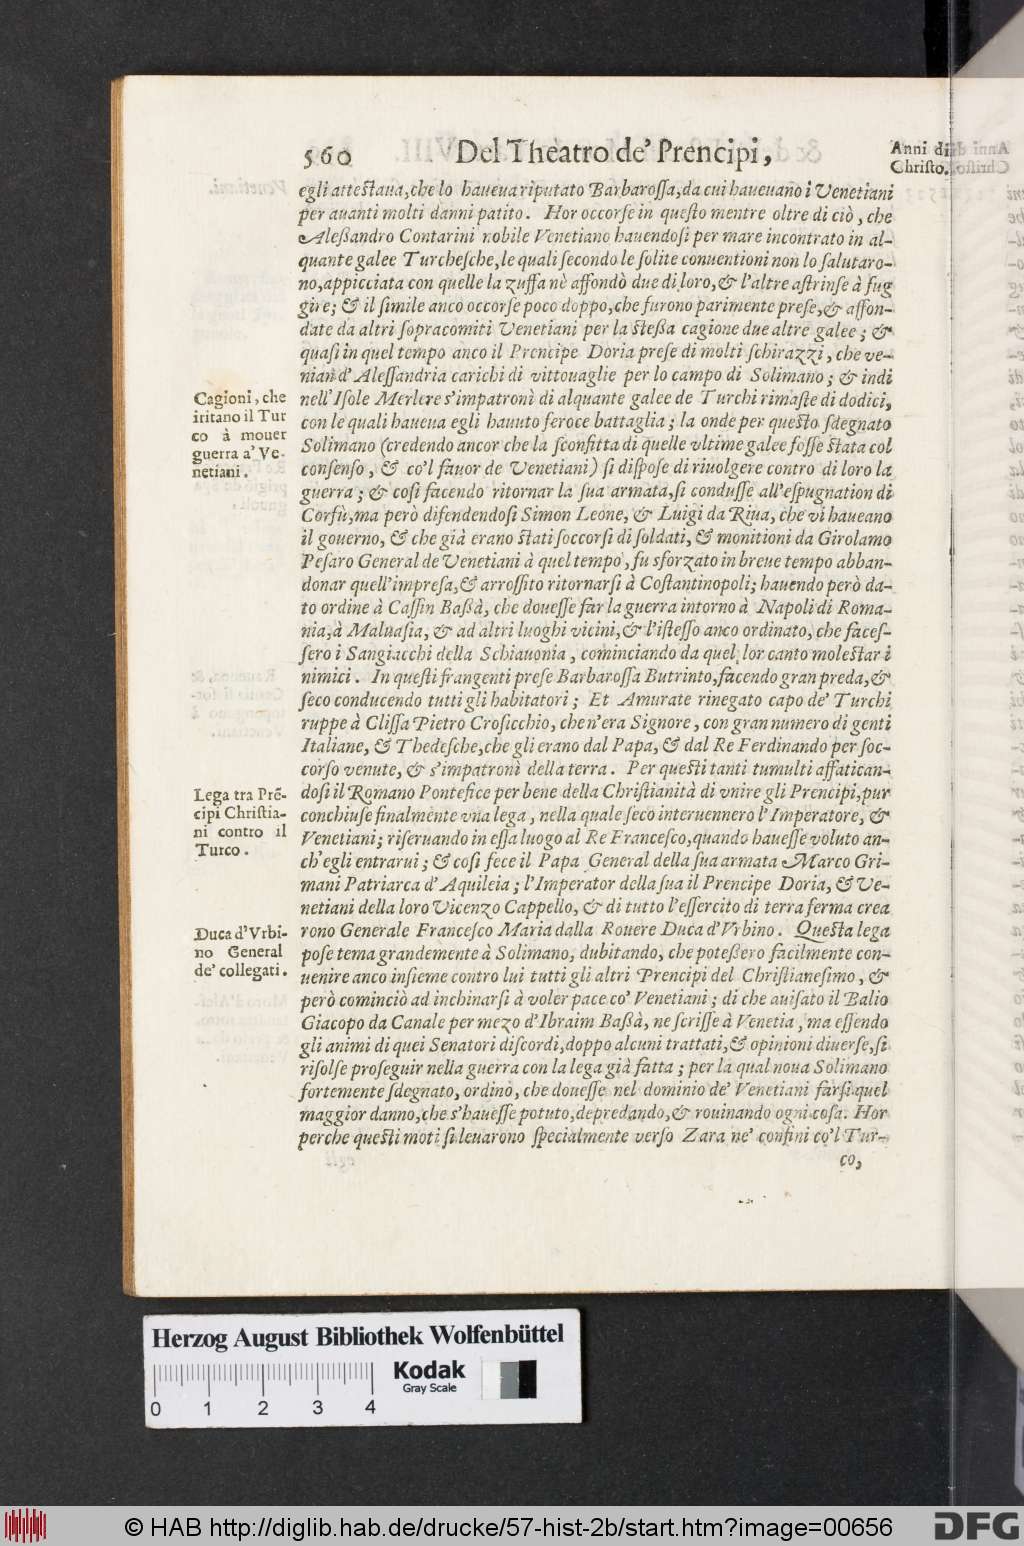 560 Del Theatro de' Prencipi,
Anni di
Christo.
egli attestaua, che lo haueua riputato Barbarossa, da cui haueuano i Venetiani
per auanti molti danni patito. Hor occorse in questo mentre oltre di ciò, che
Aleßandro Contarini nobile Venetiano hauendosi per mare incontrato in al-
quante galee Turchesche, le quali secondo le solite conuentioni non lo salutaro-
no, appicciata con quelle la zuffa nè affondò due di loro, & l'altre astrinse à fug
gire; & il simile anco occorse poco doppo, che furono parimente prese, & affon-
date da altri sopracomiti Venetiani per la steßa cagione due altre galee; &
quasi in quel tempo anco il Prencipe Doria prese di molti schirazzi, che ve-
nian d'Alessandria carichi di vittouaglie per lo campo di Solimano; & indi
nell'Isole Merlere s'impatronì di alquante galee de Turchi rimaste di dodici,
con le quali haueua egli hauuto feroce battaglia; la onde per questo sdegnato
Solimano (credendo ancor che la sconfitta di quelle vltime galee fosse stata col
consenso, & co'l fauor de Venetiani) si dispose di riuolgere contro di loro la
guerra; & così facendo ritornar la sua armata, si condusse all'espugnation di
Corfù, ma però difendendosi Simon Leone, & Luigi da Riua, che vi haueano
il gouerno, & che già erano stati soccorsi di soldati, & monitioni da Girolamo
Pesaro General de Venetiani à quel tempo, fu sforzato in breue tempo abban-
donar quell'impresa, & arrossito ritornarsi à Costantinopoli; hauendo però da-
to ordine à Cassin Baßà, che douesse far la guerra intorno à Napoli di Roma-
nia, à Maluasia, & ad altri luoghi vicini, & l'istesso anco ordinato, che faces-
sero i Sangiacchi della Schiauonia, cominciando da quel lor canto molestar i
nimici. In questi frangenti prese Barbarossa Butrinto, facendo gran preda, &
seco conducendo tutti gli habitatori; Et Amurate rinegato capo de' Turchi
ruppe à Clissa Pietro Crosicchio, che n'era Signore, con gran numero di genti
Italiane, & Thedesche, che gli erano dal Papa, & dal Re Ferdinando per soc-
corso venute, & s'impatronì della terra. Per questi tanti tumulti affatican-
dosi il Romano Pontefice per bene della Christianità di vnire gli Prencipi, pur
conchiuse finalmente vna lega, nella quale seco interuennero l'Imperatore, &
Venetiani; riseruando in essa luogo al Re Francesco, quando hauesse voluto an-
ch'egli entrarui; & così fece il Papa General della sua armata Marco Gri-
mani Patriarca d'Aquileia; l'Imperator della sua il Prencipe Doria, & Ve-
netiani della loro Vicenzo Cappello, & di tutto l'essercito di terra ferma crea
rono Generale Francesco Maria dalla Rouere Duca d'Vrbino. Questa lega
pose tema grandemente à Solimano, dubitando, che poteßero facilmente con-
uenire anco insieme contro lui tutti gli altri Prencipi del Christianesimo, &
però cominciò ad inchinarsi à voler pace co' Venetiani; di che auisato il Balio
Giacopo da Canale per mezo d'Ibraim Baßà, ne scrisse à Venetia, ma essendo
gli animi di quei Senatori discordi, doppo alcuni trattati, & opinioni diuerse, si
risolse proseguir nella guerra con la lega già fatta; per la qual noua Solimano
fortemente sdegnato, ordinò, che douesse nel dominio de' Venetiani farsi quel
maggior danno, che s'hauesse potuto, depredando, & rouinando ogni cosa. Hor
perche questi moti si leuarono specialmente verso Zara ne' confini co'l Tur-
co,
Cagioni, che
iritano il Tur
co à mouer
guerra a' Ve-
netiani.
Lega tra Prē-
cipi Christia-
ni contro il
Turco.
Duca d'Vrbi-
no General
de' collegati.
Herzog August Bibliothek Wolfenbüttel
Kodak
Gray Scale
0 1 2 3 4
© HAB http://diglib.hab.de/drucke/57-hist-2b/start.htm?image=00656
DFG